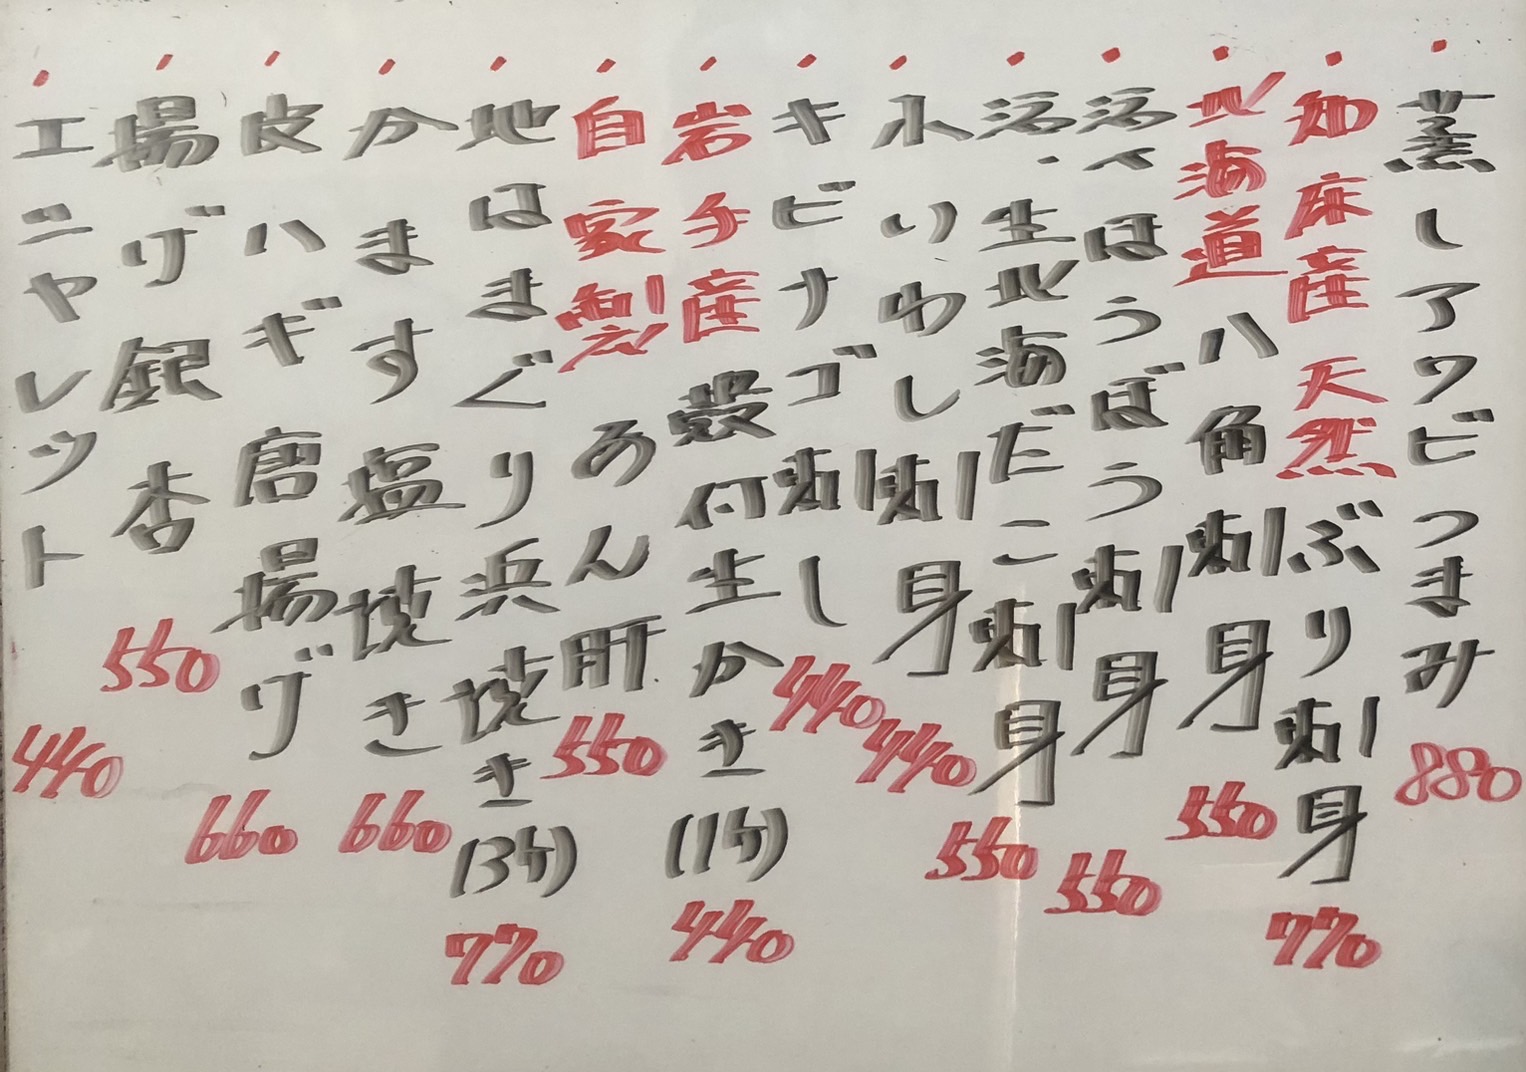 蒸しアワビつまみ 880
知床産 天然 ぶり刺身 770
北海道 八角刺身 550
活〆ほうぼう刺身 550
活・生北海だこ刺身 550
小いわし刺身 440
キビナゴ刺し 440
岩手産 殻付生かき(1ケ) 440
自家製 あん肝 550
地はまぐり浜焼き(3ケ) 770
かます塩焼き 660
皮ハギ唐揚げ 660
揚げ銀杏 550
エシャレット 440